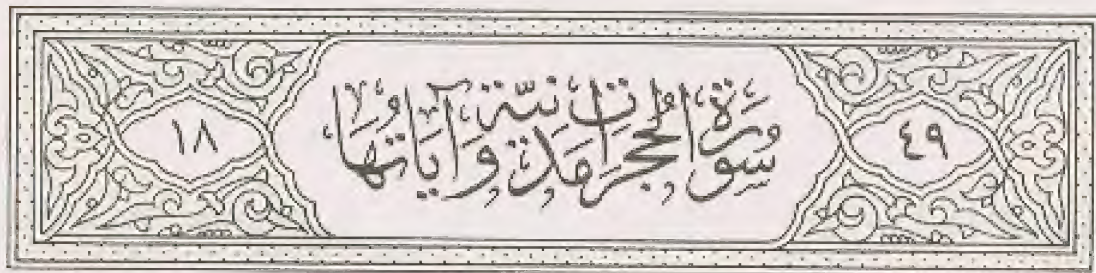 ٤٩
سُورَةُ الحُجُرَاتِ مَدَنِيَّة وَآيَاتُهَا
١٨